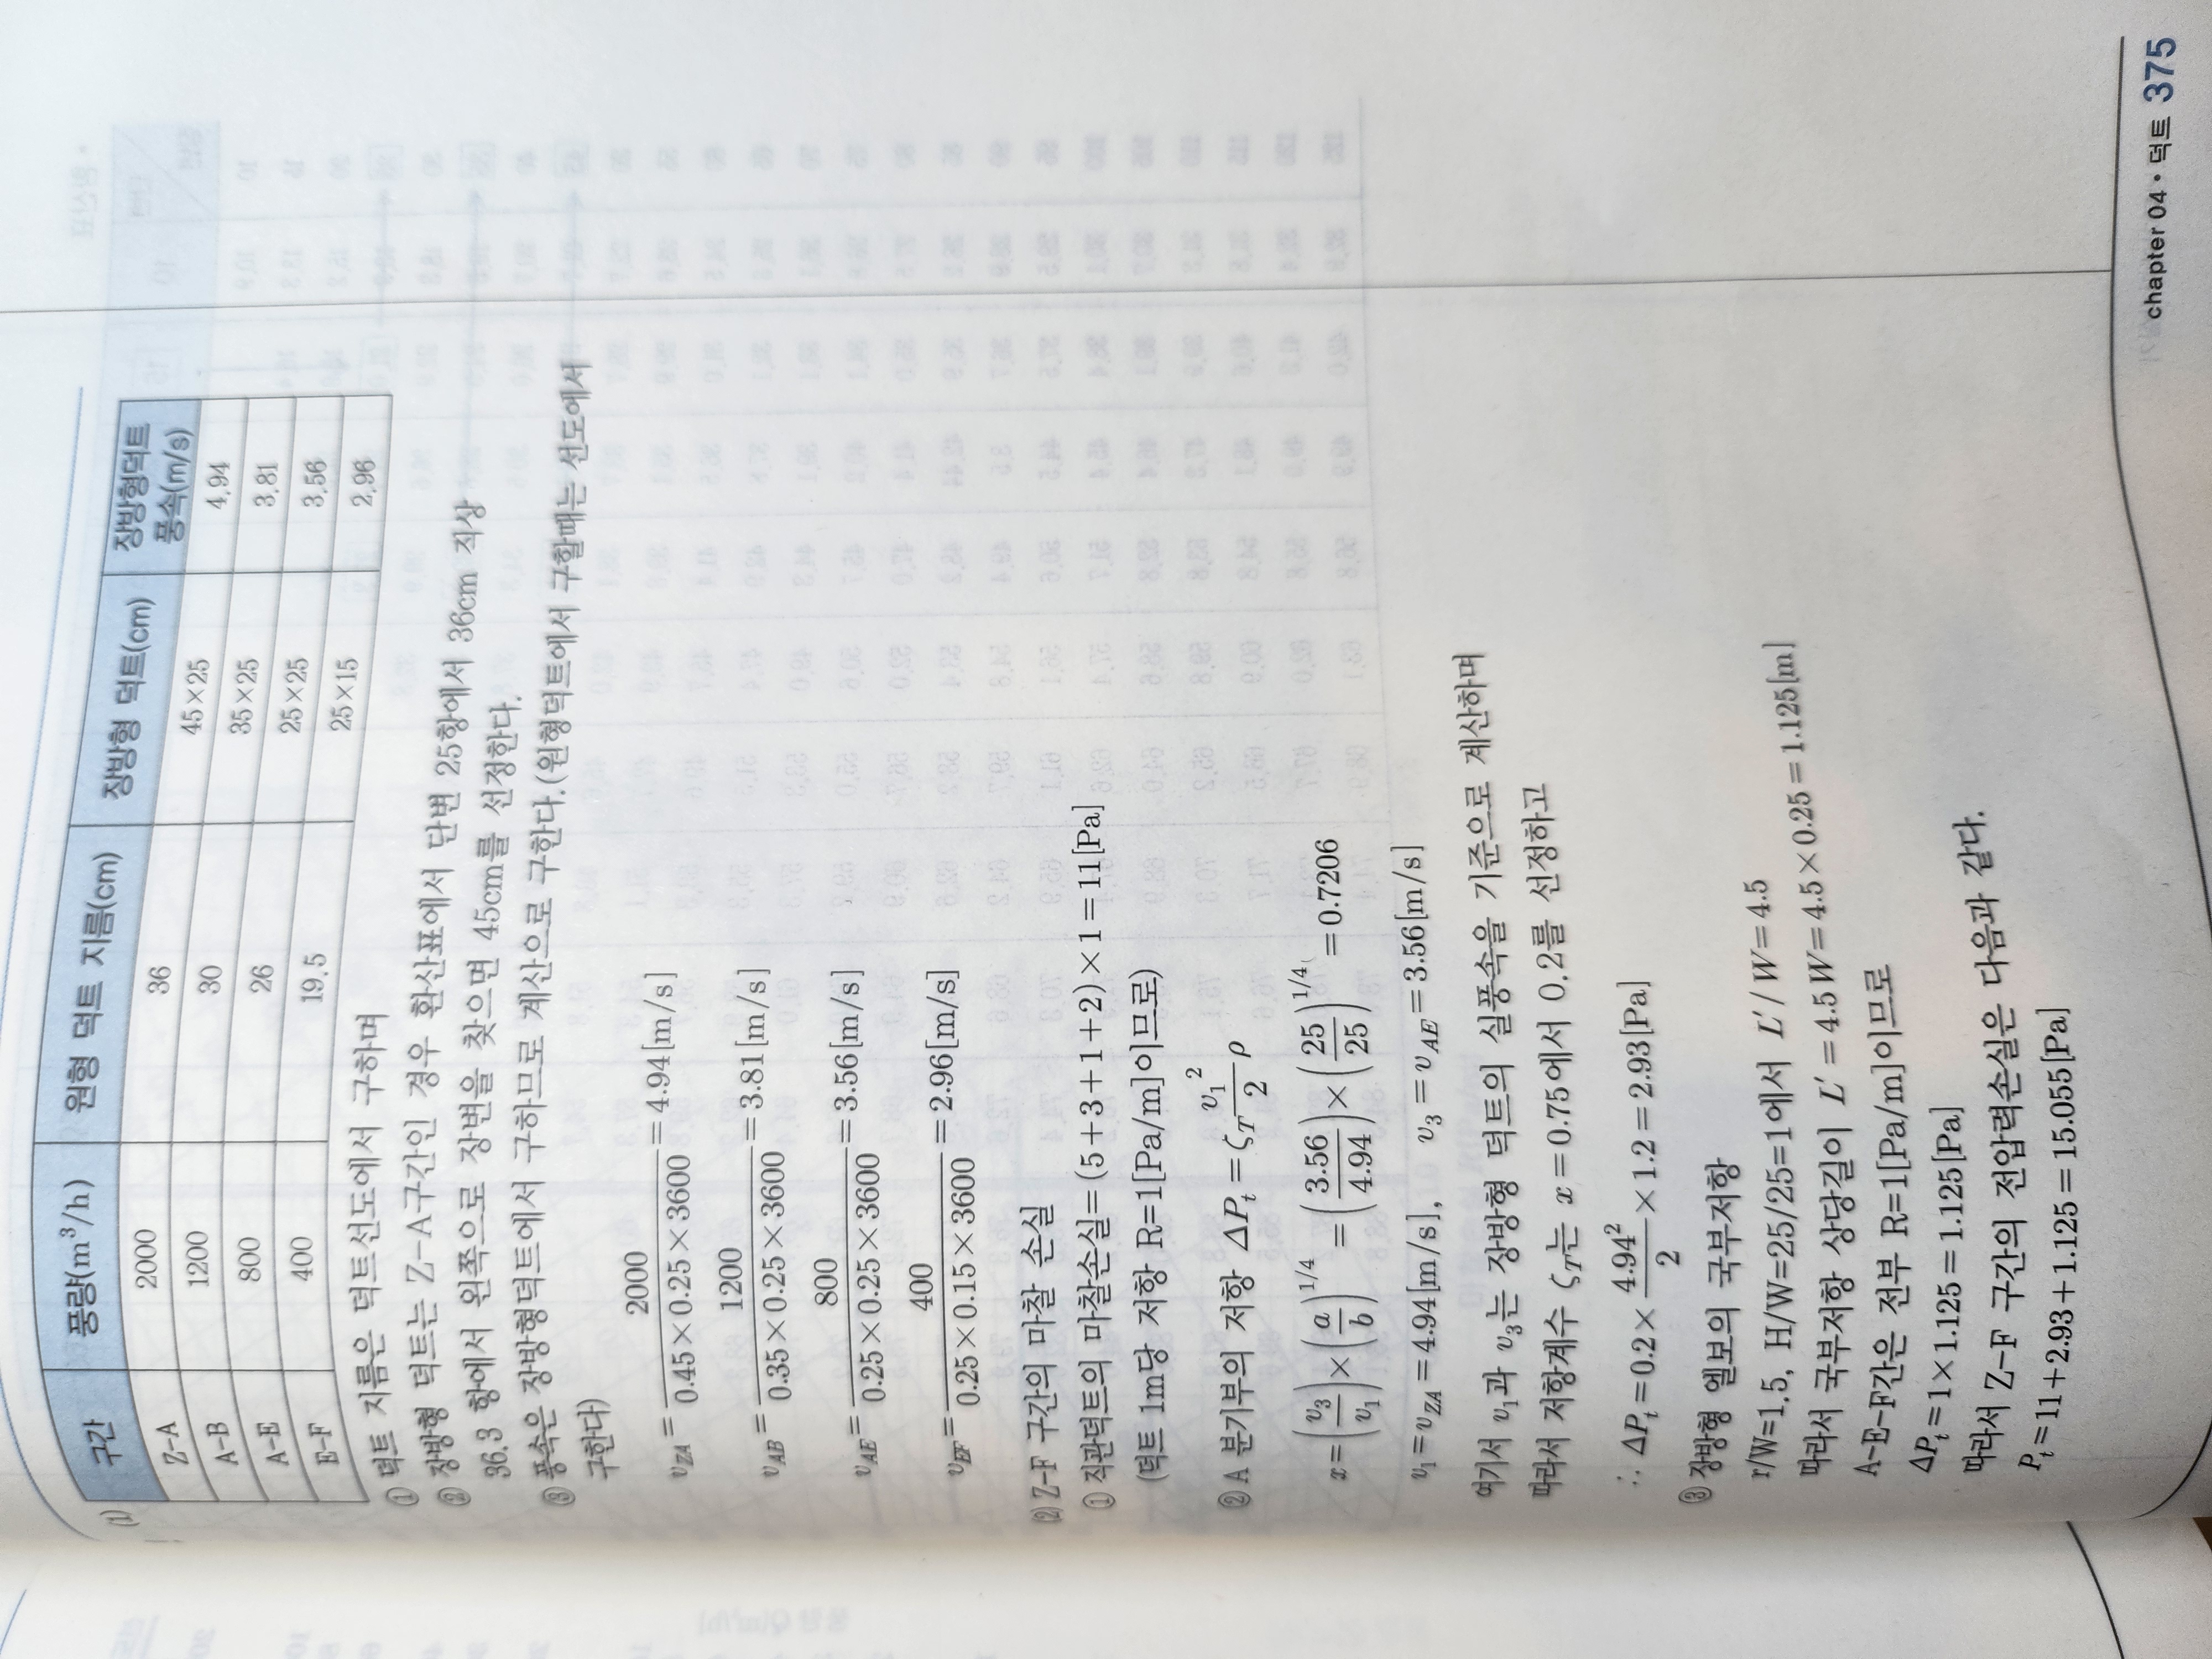 (1)
구간 풍량(m³/h) 원형 덕트 지름(cm) 장방형 덕트(cm) 장방형덕트 풍속(m/s)
Z-A 2000 36 45×25 4.94
A-B 1200 30 35×25 3.81
A-E 800 26 25×25 3.56
E-F 400 19.5 25×15 2.96
① 덕트 지름은 덕트선도에서 구하며
② 장방형 덕트는 Z-A구간인 경우 환산표에서 단변 25항에서 36cm 직상
36.3 항에서 왼쪽으로 장변을 찾으면 45cm를 선정한다.
③ 풍속은 장방형덕트에서 구하므로 계산으로 구한다.(원형덕트에서 구할때는 선도에서
구한다)
v_ZA = 2000 / (0.45×0.25×3600) = 4.94[m/s]
v_AB = 1200 / (0.35×0.25×3600) = 3.81[m/s]
v_AE = 800 / (0.25×0.25×3600) = 3.56[m/s]
v_EF = 400 / (0.25×0.15×3600) = 2.96[m/s]
(2) Z-F 구간의 마찰 손실
① 직관덕트의 마찰손실=(5+3+1+2)×1=11[Pa]
(덕트 1m당 저항 R=1[Pa/m]이므로)
② A 분기부의 저항 ΔP_t = ζ_T (v₁²/2) ρ
x = (v₃/v₁)×(a/b)^{1/4} = (3.56/4.94)×(25/25)^{1/4} = 0.7206
v₁ = v_ZA = 4.94[m/s], v₃ = v_AE = 3.56[m/s]
여기서 v₁과 v₃는 장방형 덕트의 실풍속을 기준으로 계산하며
따라서 저항계수 ζ_T는 x=0.75에서 0.2를 선정하고
∴ ΔP_t = 0.2× 4.94²/2 ×1.2 = 2.93[Pa]
③ 장방형 엘보의 국부저항
r/W=1.5, H/W=25/25=1에서 L′/W=4.5
따라서 국부저항 상당길이 L′=4.5W=4.5×0.25=1.125[m]
A-E-F간은 전부 R=1[Pa/m]이므로
ΔP_t = 1×1.125 = 1.125[Pa]
따라서 Z-F 구간의 전압력손실은 다음과 같다.
P_t = 11+2.93+1.125 = 15.055[Pa]
chapter 04 • 덕트 375